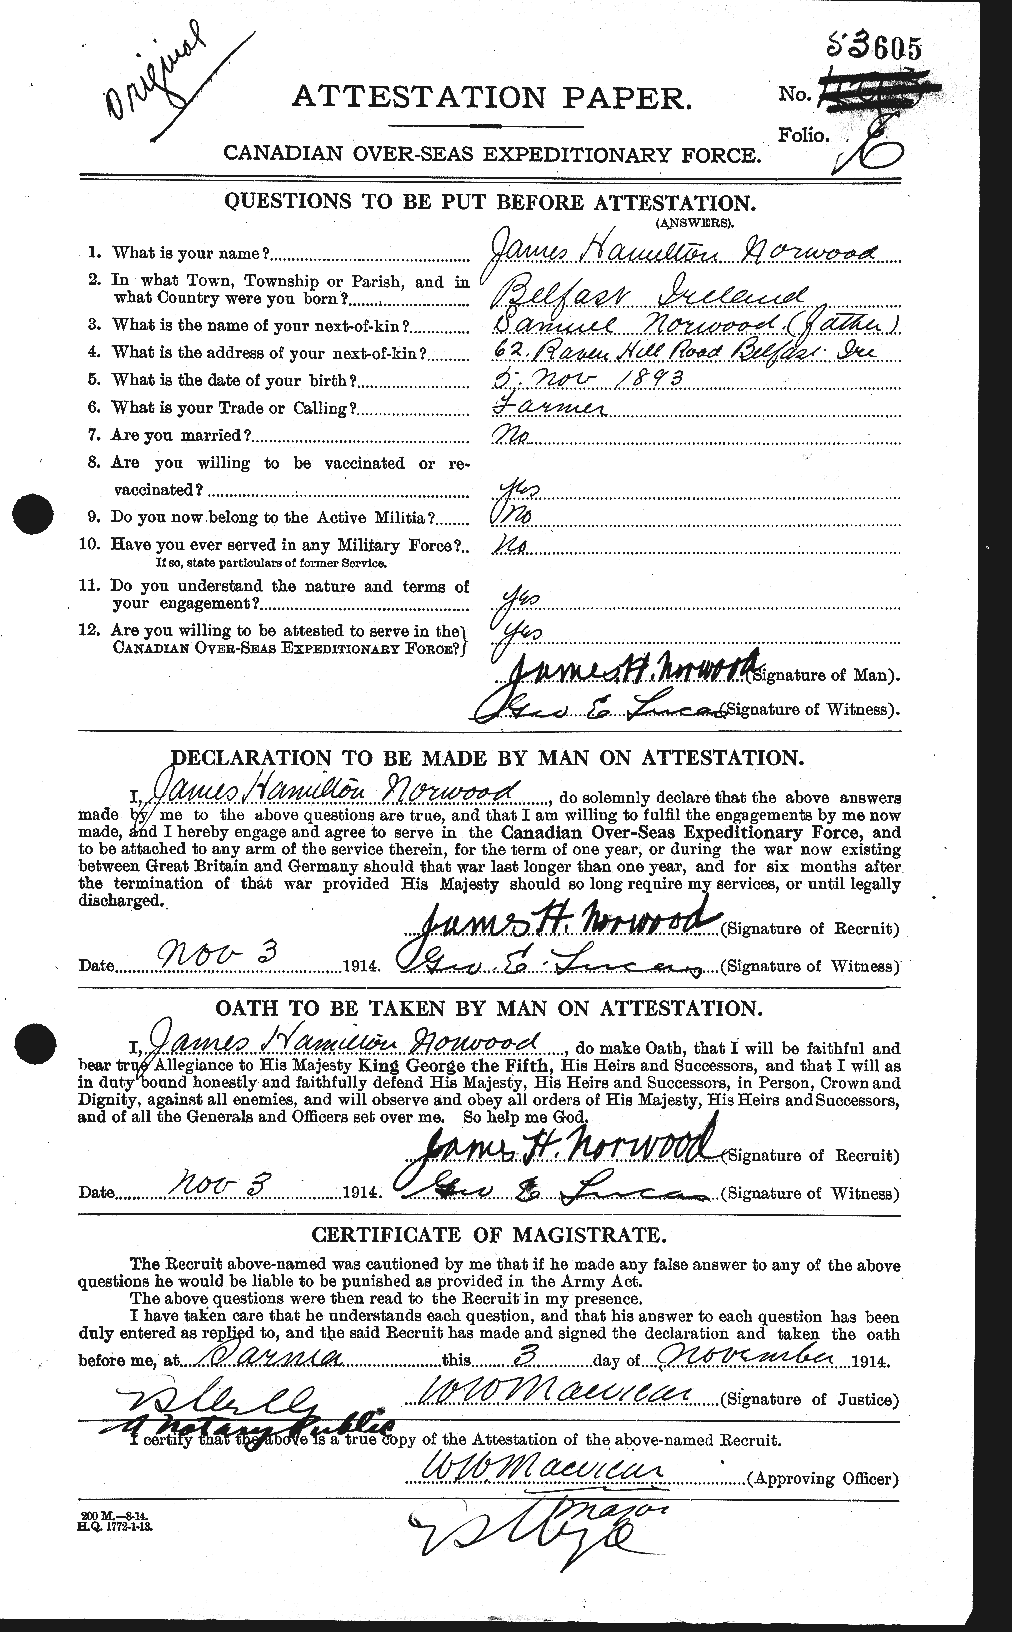 Original
53605
ATTESTATION PAPER.
No.
Folio. E
CANADIAN OVER-SEAS EXPEDITIONARY FORCE.
QUESTIONS TO BE PUT BEFORE ATTESTATION.
(ANSWERS).
1. What is your name? James Hamilton Norwood
2. In what Town, Township or Parish, and in
what Country were you born? Belfast Ireland
3. What is the name of your next-of-kin? Samuel Norwood (Father)
4. What is the address of your next-of-kin? 62 Raven Hill Road Belfast Ire
5. What is the date of your birth? 5. Nov 1893
6. What is your Trade or Calling? Farmer
7. Are you married? No
8. Are you willing to be vaccinated or re-
vaccinated? yes
9. Do you now belong to the Active Militia? No
10. Have you ever served in any Military Force? No
If so, state particulars of former Service.
11. Do you understand the nature and terms of
your engagement? yes
12. Are you willing to be attested to serve in the
CANADIAN OVER-SEAS EXPEDITIONARY FORCE? yes
James H. Norwood (Signature of Man).
Geo E Lucas (Signature of Witness).
DECLARATION TO BE MADE BY MAN ON ATTESTATION.
I, James Hamilton Norwood, do solemnly declare that the above answers
made by me to the above questions are true, and that I am willing to fulfil the engagements by me now
made, and I hereby engage and agree to serve in the Canadian Over-Seas Expeditionary Force, and
to be attached to any arm of the service therein, for the term of one year, or during the war now existing
between Great Britain and Germany should that war last longer than one year, and for six months after
the termination of that war provided His Majesty should so long require my services, or until legally
discharged.
James H. Norwood (Signature of Recruit)
Date Nov 3 1914. Geo. E. Lucas (Signature of Witness)
OATH TO BE TAKEN BY MAN ON ATTESTATION.
I, James Hamilton Norwood, do make Oath, that I will be faithful and
bear true Allegiance to His Majesty King George the Fifth, His Heirs and Successors, and that I will as
in duty bound honestly and faithfully defend His Majesty, His Heirs and Successors, in Person, Crown and
Dignity, against all enemies, and will observe and obey all orders of His Majesty, His Heirs and Successors,
and of all the Generals and Officers set over me. So help me God.
James H. Norwood (Signature of Recruit)
Date Nov 3 1914. Geo E Lucas (Signature of Witness)
CERTIFICATE OF MAGISTRATE.
The Recruit above-named was cautioned by me that if he made any false answer to any of the above
questions he would be liable to be punished as provided in the Army Act.
The above questions were then read to the Recruit in my presence.
I have taken care that he understands each question, and that his answer to each question has been
duly entered as replied to, and the said Recruit has made and signed the declaration and taken the oath
before me, at Sarnia this 3 day of November 1914.
W W Macvicar (Signature of Justice)
A Notary Public
I certify that the above is a true copy of the Attestation of the above-named Recruit.
W W Macvicar (Approving Officer)
Major
200 M.—8-14.
H.Q. 1772-1-13.